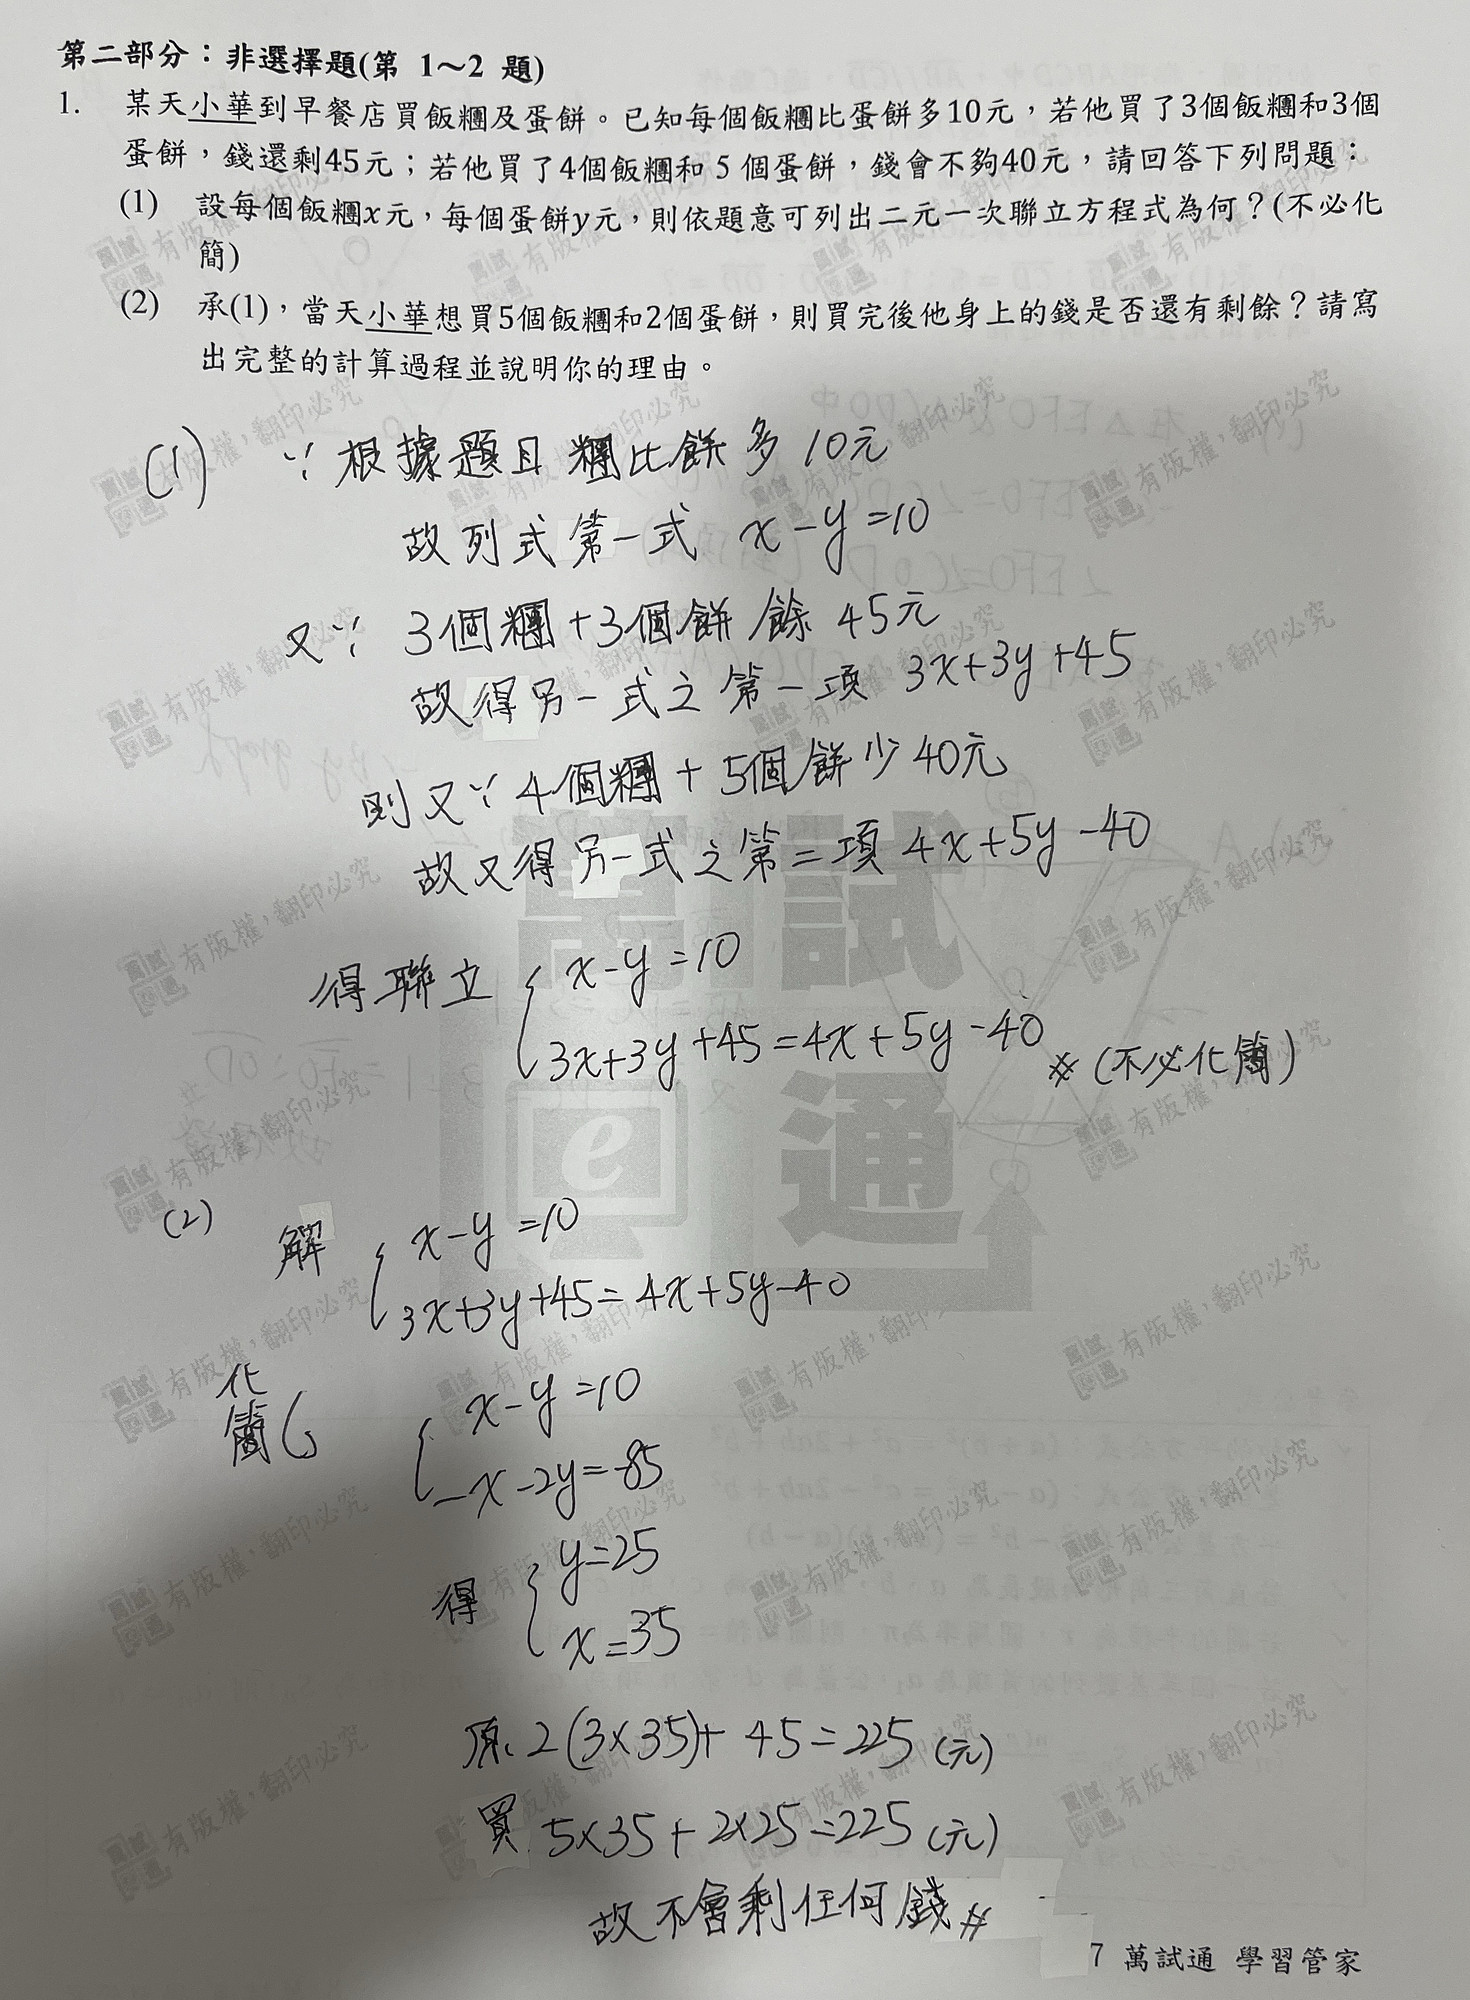 第二部分：非選擇題(第 1～2 題)
1. 某天小華到早餐店買飯糰及蛋餅。已知每個飯糰比蛋餅多10元，若他買了3個飯糰和3個
蛋餅，錢還剩45元；若他買了4個飯糰和 5 個蛋餅，錢會不夠40元，請回答下列問題：
(1) 設每個飯糰x元，每個蛋餅y元，則依題意可列出二元一次聯立方程式為何？(不必化
簡)
(2) 承(1)，當天小華想買5個飯糰和2個蛋餅，則買完後他身上的錢是否還有剩餘？請寫
出完整的計算過程並說明你的理由。
(1) ∵ 根據題目 糰比餅多 10元
故列式第一式 x-y=10
又∵ 3個糰+3個餅餘 45元
故得另一式之第一項 3x+3y+45
則又∵ 4個糰+5個餅少40元
故又得另一式之第二項 4x+5y-40
得聯立 { x-y=10
3x+3y+45=4x+5y-40 # (不必化簡)
(2) 解 { x-y=10
3x+3y+45=4x+5y-40
化簡 { x-y=10
-x-2y=-85
得 { y=25
x=35
原、2(3×35)+ 45=225 (元)
買 5×35+2×25=225 (元)
故不會剩任何錢#
萬試通
e
有版權，翻印必究
7 萬試通 學習管家